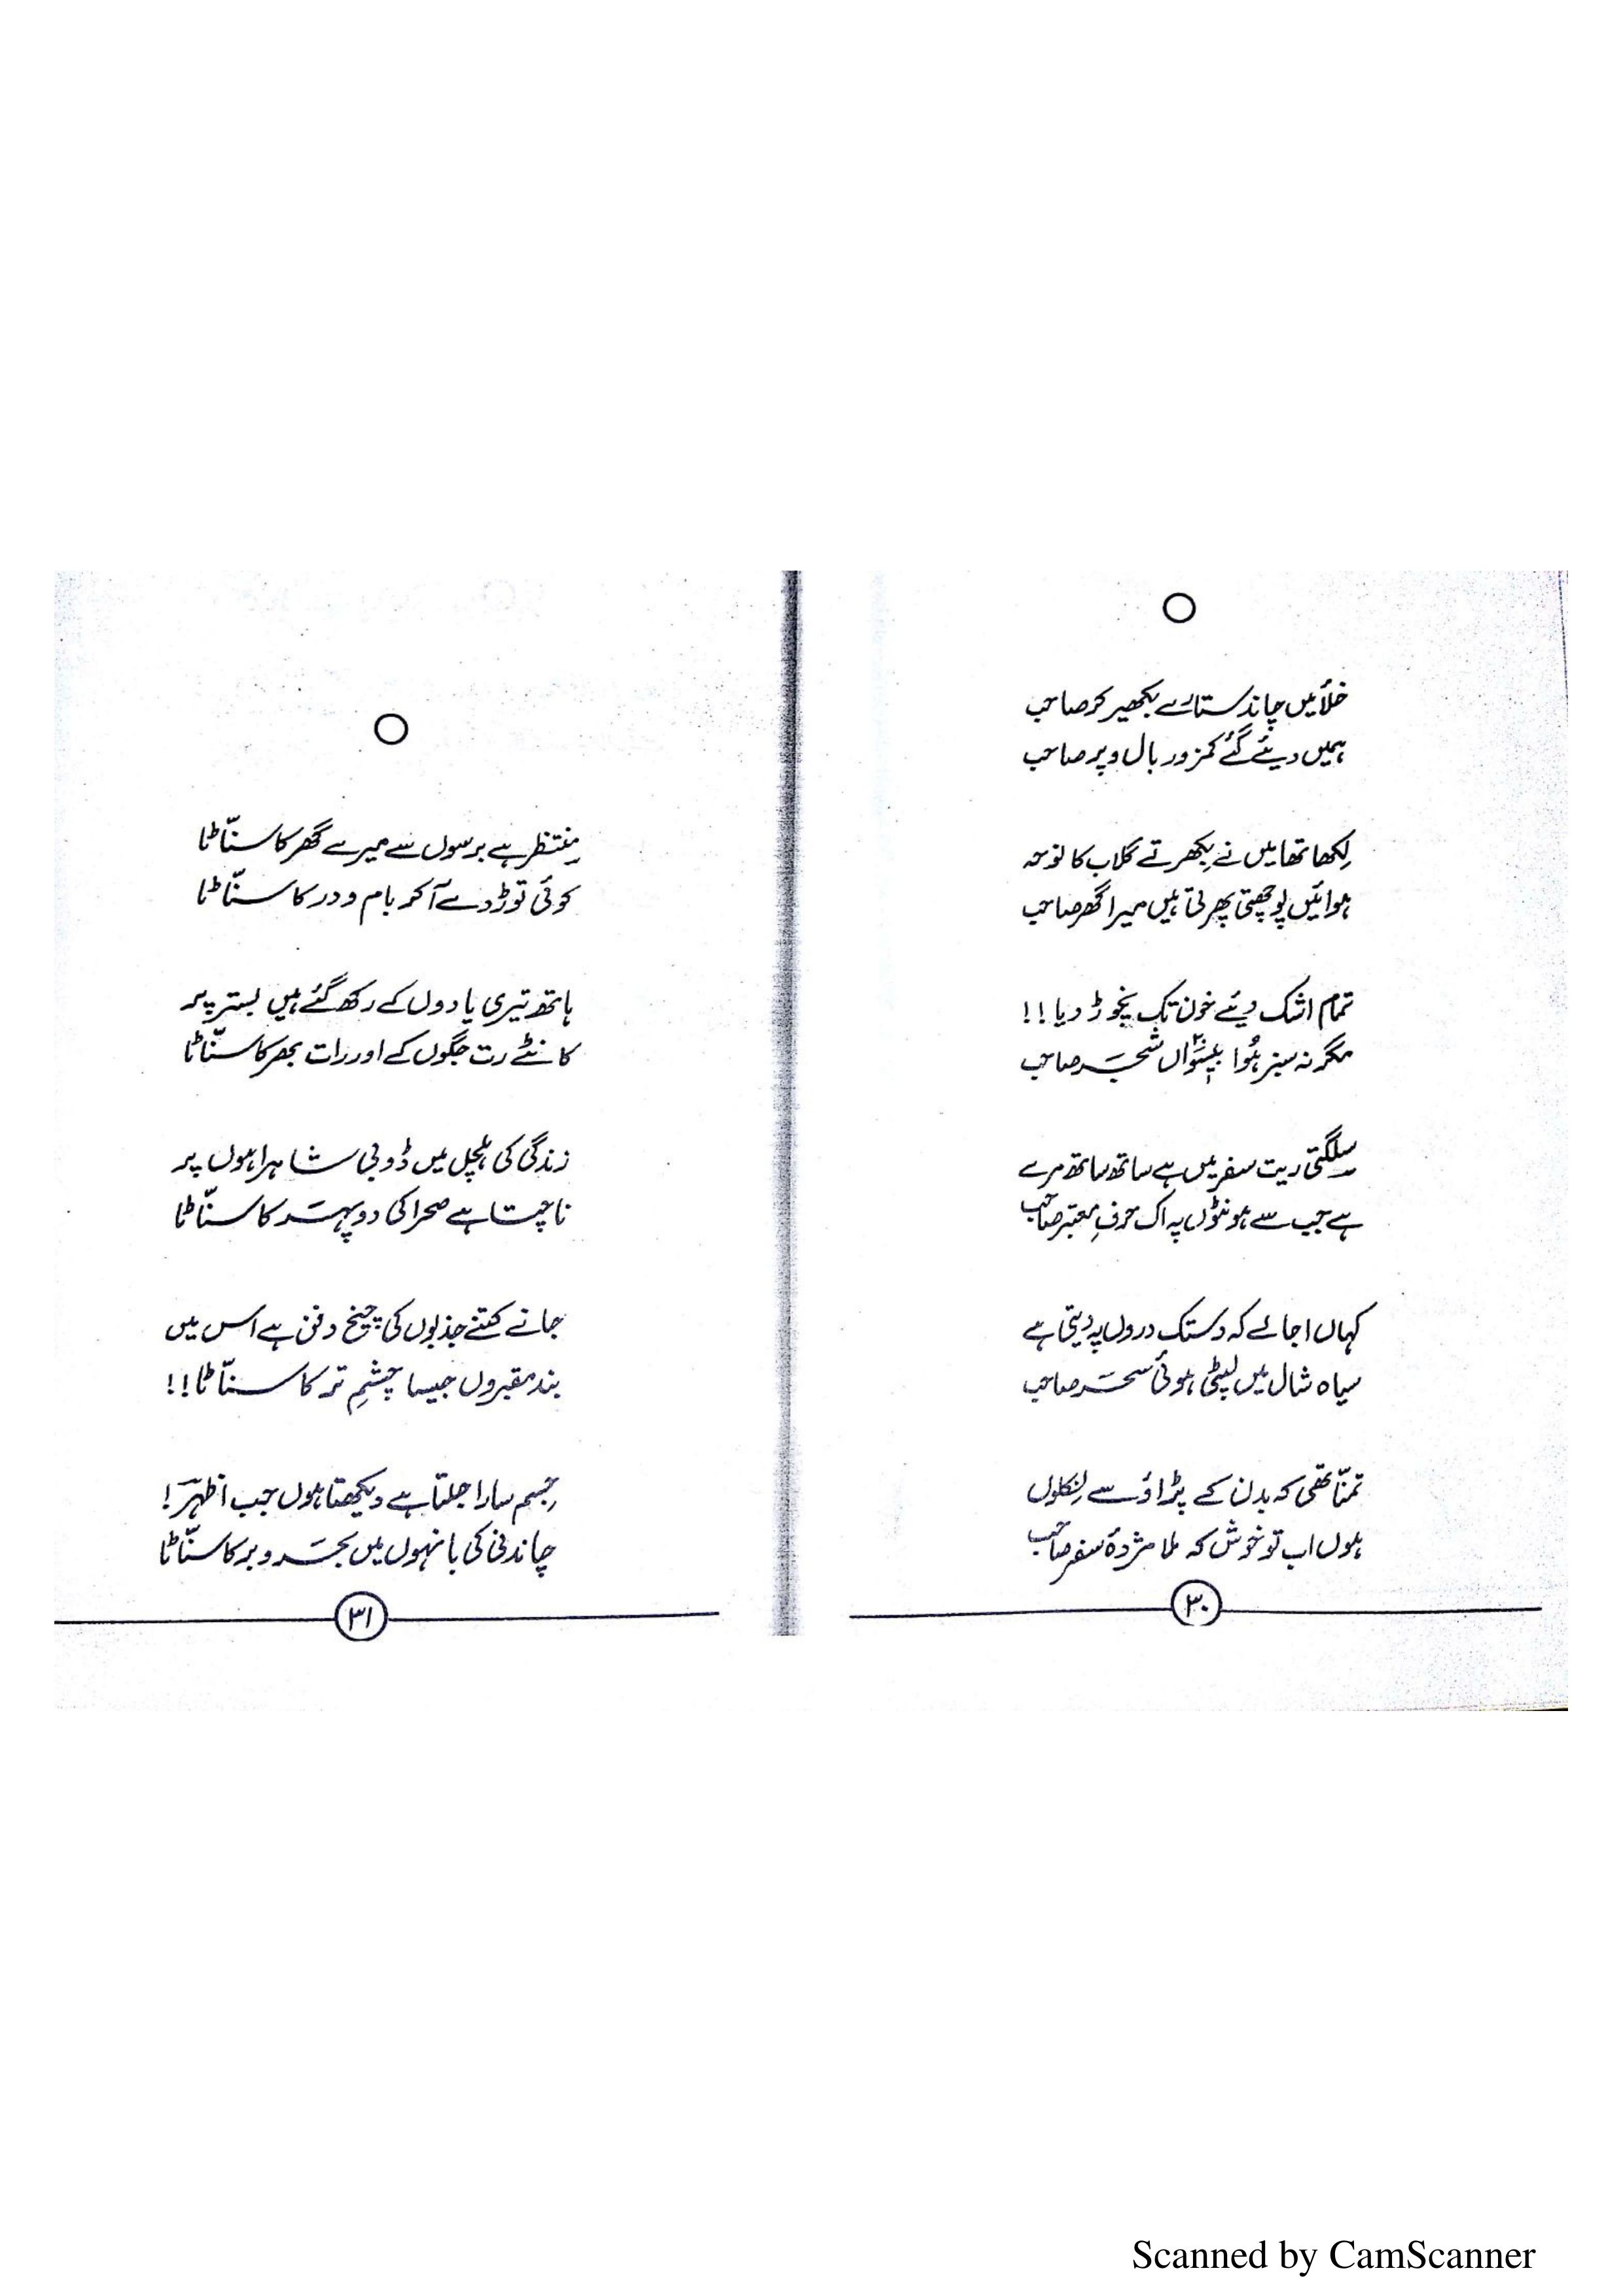 خلأ میں چاند ستارے بکھیر کر صاحب
ہمیں دیئے گئے کمزور بال و پر صاحب
لِکھا تھا میں نے بِکھرتے گلاب کا نوحہ
ہوائیں پوچھتی پھرتی ہیں میرا گھر صاحب
تمام اشک دیئے خون تک نچوڑ دیا !!
مگر نہ سبز ہُوا شجر صاحب
سلگتی ریت سفر میں ہے ساتھ ساتھ مرے
ہے جب سے ہونٹوں پہ اک حرفِ معتبر صاحب
کہاں اجالے کہ دستک دروں پہ دیتی ہے
سیاہ شال میں لپٹی ہوئی سحَر صاحب
تمنّا تھی کہ بدن کے پڑاؤ سے نِکلوں
ہوں اب تو خوش کہ ملا مژدۂ سفر صاحب
۳۰
مِنتظر ہے برسوں سے میرے گھر کا سنّاٹا
کوئی توڑ دے آ کر بام و در کا سنّاٹا
ہاتھ تیری یادوں کے رکھ گئے ہیں بستر پر
کانٹے رت جگوں کے اور رات بھر کا سنّاٹا
زندگی کی ہلچل میں ڈوبی شاہراہوں پر
ناچتا ہے صحرا کی دوپہَر کا سنّاٹا
جانے کتنے جذبوں کی چیخ دفن ہے اس میں
بند مقبروں جیسا چشمِ تر کا سنّاٹا !!
جِسم سارا جلتا ہے دیکھتا ہوں جب اظہرؔ !
چاندنی کی بانہوں میں بحَر و بر کا سنّاٹا
۳۱
Scanned by CamScanner